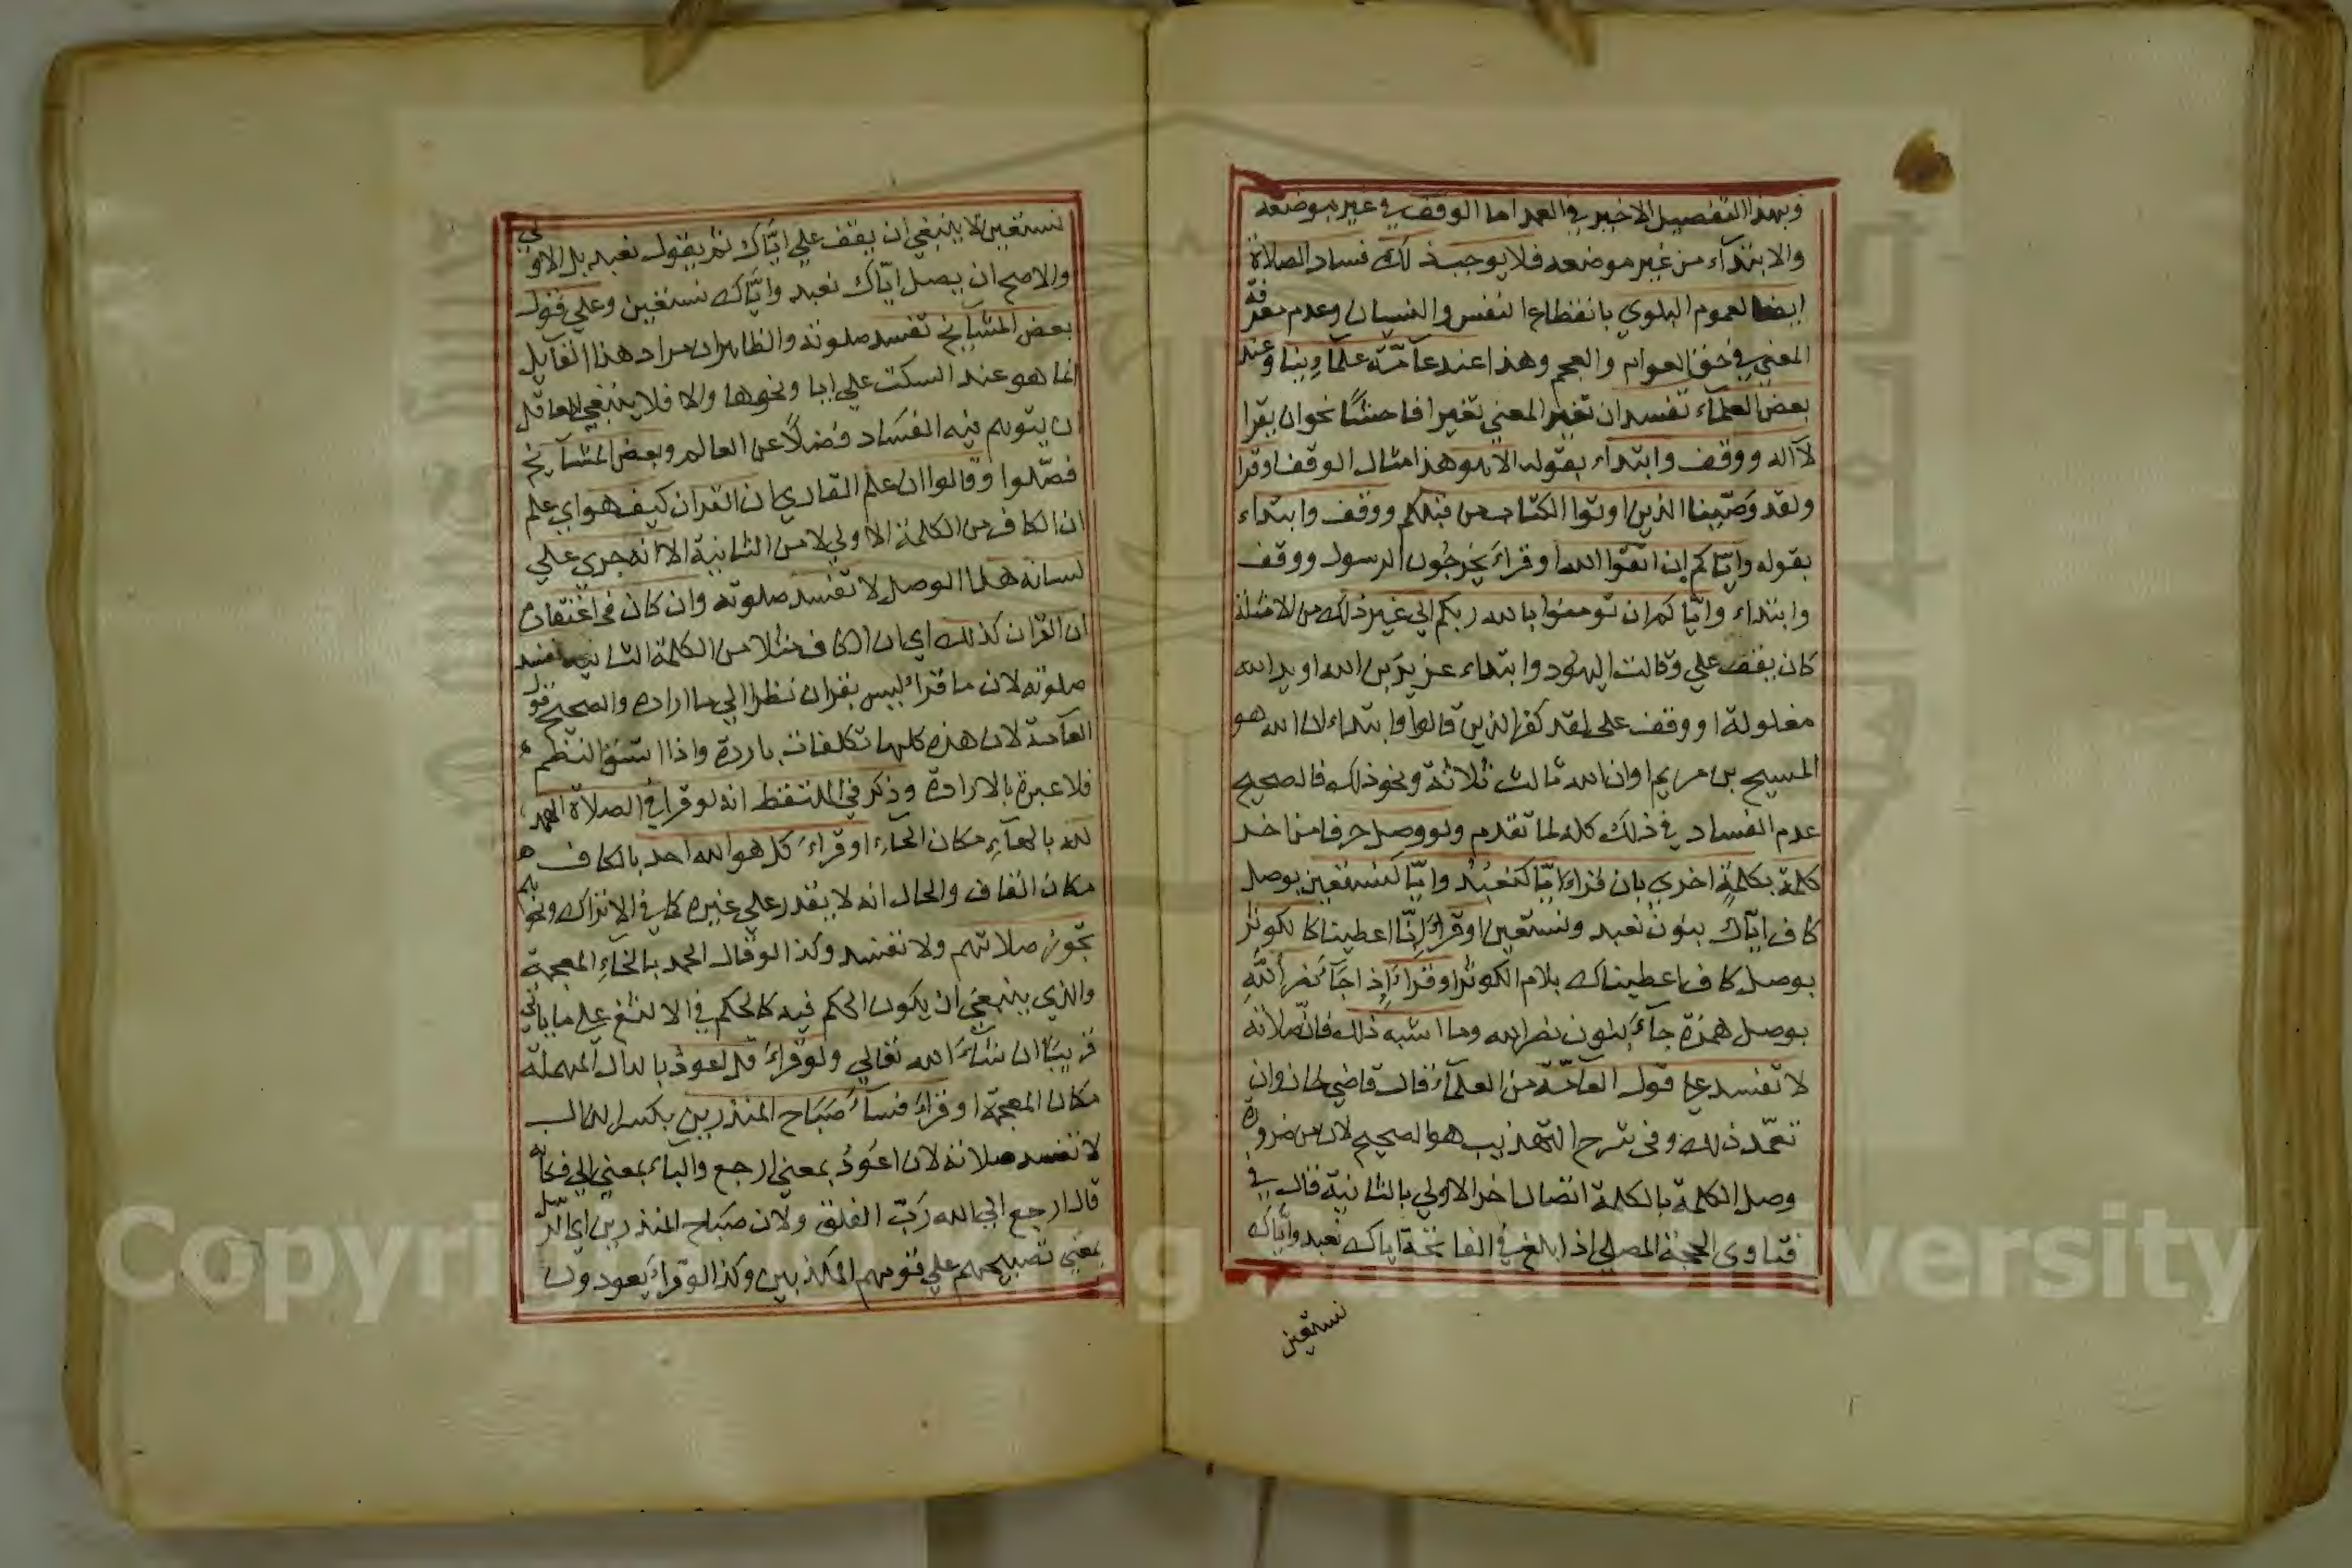 وبهذا التفصيل الاخير في العمد اما الوقف في غير موضعه
والابتدآء من غير موضعه فلا يوجب ذلك فساد الصلاة
ايضا لعموم البلوي بانقطاع النفس والنسيان وعدم معرفة
المعني في حق العوام والعجم وهذا عند عآمّة علمآءِنا وعند
بعض العلمآء تفسد ان تغير المعني تغيرا فاحشًا نحوان يقرا
لآاله ووقف وابتداء بقوله الا هو هذا مثال الوقف اوقرا
ولقد وصّينا الذين اوتوا الكتاب من قبلكم ووقف وابتداء
بقوله وايّاكم ان اتقوا الله اوقراءَ يخرجُون الرسول ووقف
وابتداء وايّاكم ان تومنوا بالله ربكم الي غير ذلك من الامثلة
كان يقف علي وقالت اليهود وابتداء عزير بن الله او يد الله
مغلولة او وقف علي لقد كفر الذين قالوا وابتداء ان الله هو
المسيح بن مريم اوان الله ثالث ثلاثة ونحو ذلك فالصحيح
عدم الفساد في ذلك كله لما تقدم ولو وصل حرفا من اخر
كلمة بكلمةٍ اخري بان قراءَ ايّا كنعبُد وايّا كنستعين بوصل
كاف ايّاك بنون نعبد ونستعين اوقراءَ اِنّا اعطينا كالكوثر
بوصل كاف اعطيناك بلام الكوثر اوقراءَ اِذا جآ ءَنصر اللّهِ
بوصل همزة جآءَ بنون نصر الله وما اشبه ذلك فانّ صلاته
لا تفسد علي قول العآمّة من العلمآء قال قاضي خان وان
تعمّد ذلك وفي شرح التهذيب هو الصحيح لان من ضرورة
وصل الكلمة بالكلمة اتصال اخر الاولي بالثانية قال في
فتاوي الحجة المصلي اذا بلغ في الفاتحة اياك نعبد وايّاك
نستعين
نستعين لا ينبغي ان يقف علي ايّاك ثم يقول نعبد بل الاولي
والاصح ان يصل ايّاك نعبد وايّاك نستعين وعلي قول
بعض المشايخ تفسد صلوته والظاهر ان مراد هذا القآيل
انما هو عند السكت علي ايا ونحوها والا فلا ينبغي لعاقل
ان يتوهم فيه الفسَاد فضلًا عن العالم وبعض المشآيخ
فصّلوا وقالوا ان علم القاري ان القران كيف هو اي علم
ان الكاف من الكلمة الاولي لا من الثانية الا انه جري علي
لسانه هذا الوصل لا تفسد صلوته وان كان في اعتقاده
ان القران كذلك اي ان الكاف مثلا من الكلمة الثانية تفسد
صلوته لان ما قراء ليس بقران نظرا الي ما اراده والصحيح قول
العآمة لان هذه كلها تكلفات باردة واذا اتسق النظم
فلا عبرة بالارادة وذكر في الملتقط انه لو قرا في الصلاة الهمد
لله بالهآءِ مكان الحآء اوقراءَ كل هو الله احد بالكاف
مكان القاف والحال انه لا يقدر علي غيره كما في الاتراك ونحوهم
تجوز صلاتهم ولا تفسد وكذا لو قال الخمد بالخآءِ المعجمة
والذي ينبغي ان يكون الحكم فيه كالحكم في الالثغ علي ما ياتي
قريبًا ان شآءَ الله تعالي ولو قراءَ قل اعود بالدال المهملة
مكان المعجمة اوقراءَ فسآءَ صَبَاح المنذرين بكسر الذال
لا تفسد صلاته لان اعوُدُ بمعني ارجع والبآء بمعني الي فكانه
قال ارجع الي الله رَبّ الفلق ولان صبَاح المنذرين اي الرسل
بمعني تصبيحهم علي قومهم المكذبين وكذا لو قراءَ يعودون